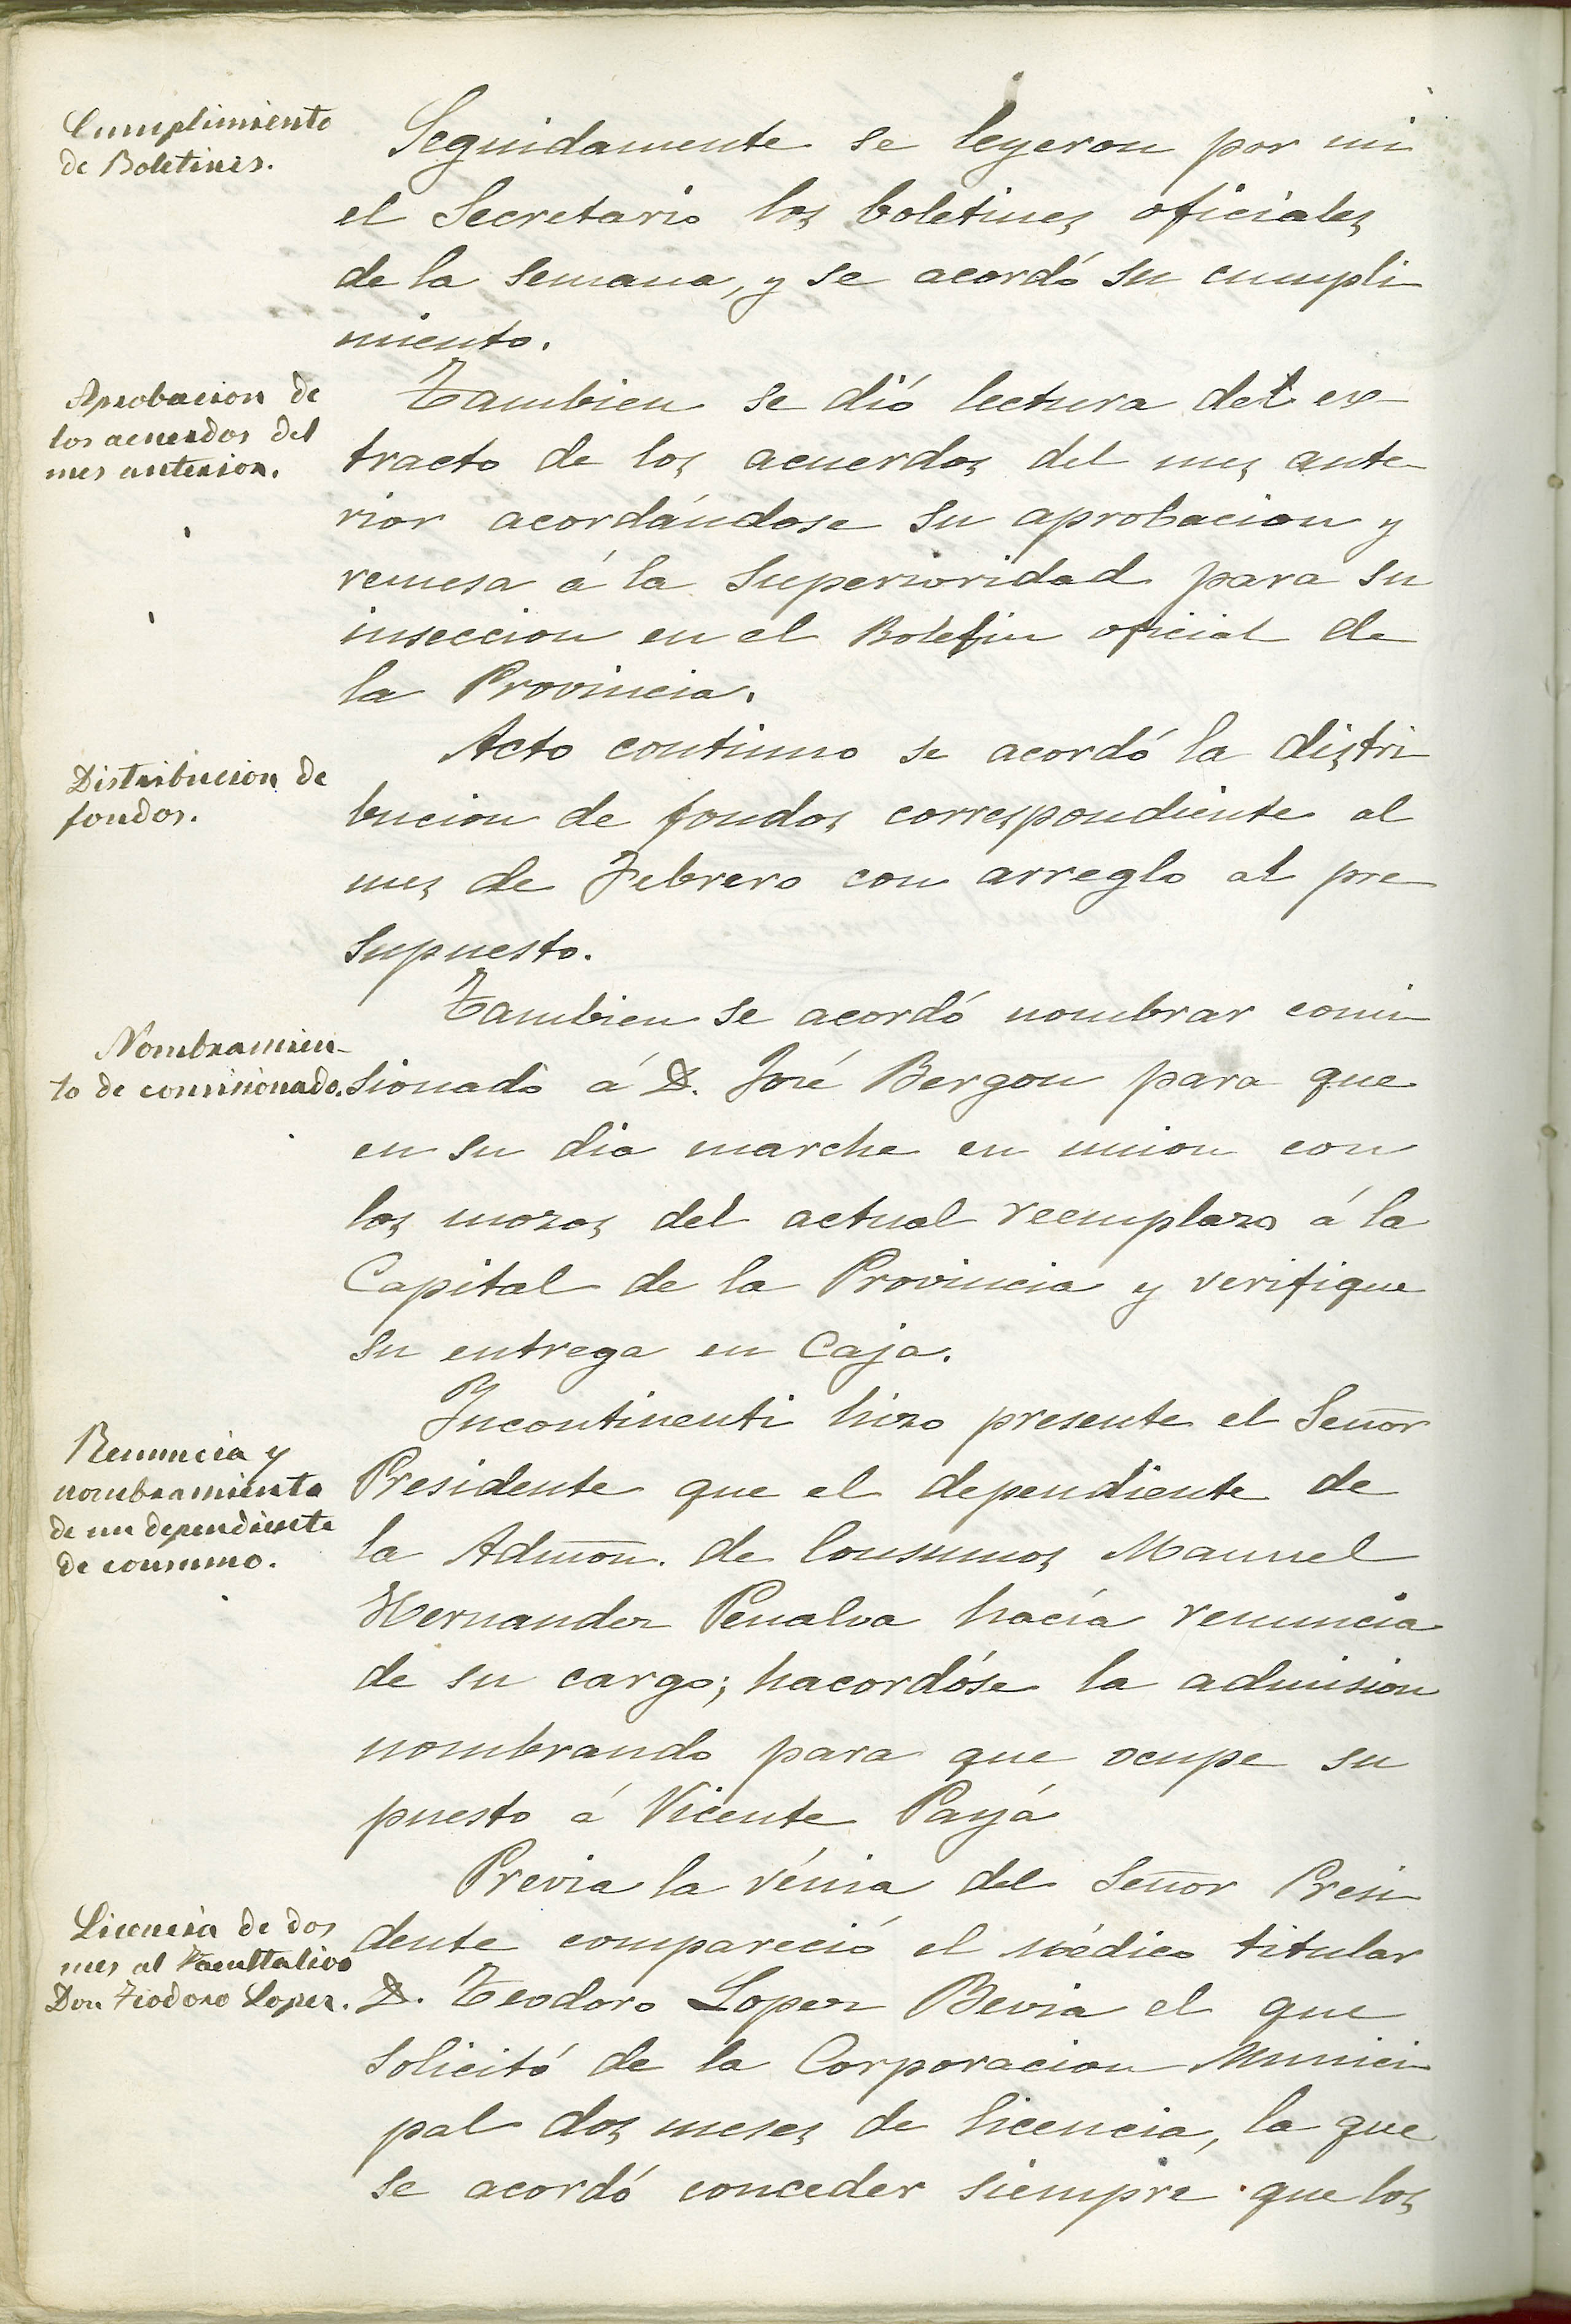 Cumplimiento
de Boletines.
Seguidamente se leyeron por mi
el Secretario los boletines oficiales
de la semana, y se acordó su cumpli
miento.
Aprobacion de
los acuerdos del
mes anterior.
Tambien se dió lectura del ex-
tracto de los acuerdos del mes ante-
rior acordándose su aprobacion y
remesa á la Superioridad para su
inseccion en el Boletin oficial de
la Provincia.
Distribucion de
fondos.
Acto continuo se acordó la distri
bucion de fondos correspondiente al
mes de Febrero con arreglo al pre
supuesto.
Nombramien-
to de comisionado.
Tambien se acordó nombrar comi
sionado á D. José Bergon para que
en su dia marche en union con
los mozos del actual reemplazo á la
Capital de la Provincia y verifique
su entrega en Caja.
Renuncia y
nombramiento
de un dependiente
de consumo.
Incontinenti hizo presente el Señor
Presidente que el dependiente de
la Admon. de Consumos Manuel
Hernandez Penalva hacía renuncia
de su cargo; hacordóse la admision
nombrando para que ocupe su
puesto á Vicente Payá
Licencia de dos
mes al Facultativo
Don Teodoro Lopez.
Previa la vénia del Señor Presi
dente compareció el médico titular
D. Teodoro Lopez Bevia el que
solicitó de la Corporacion Munici
pal dos meses de licencia, la que
se acordó conceder siempre que los